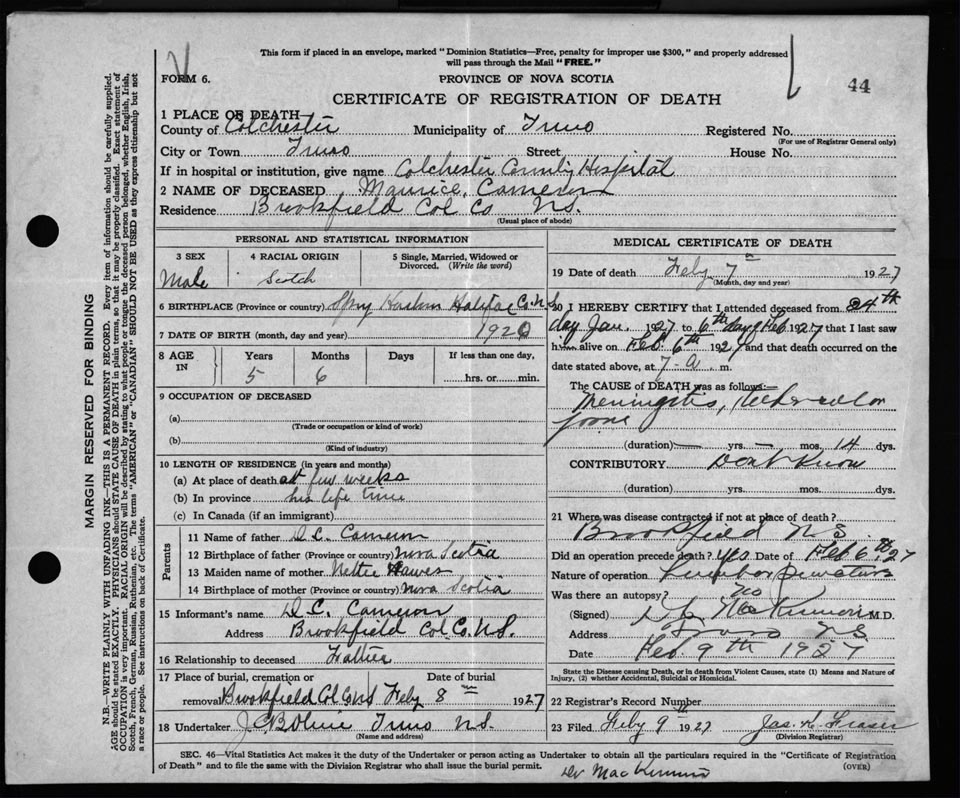 This form if placed in an envelope, marked "Dominion Statistics—Free, penalty for improper use $300," and properly addressed
will pass through the Mail "FREE."
44
FORM 6.
PROVINCE OF NOVA SCOTIA
CERTIFICATE OF REGISTRATION OF DEATH
1 PLACE OF DEATH—
County of Colchester Municipality of Truro Registered No.
(For use of Registrar General only)
City or Town Truro Street House No.
If in hospital or institution, give name Colchester County Hospital
2 NAME OF DECEASED Maurice Cameron
Residence Brookfield Col Co N.S.
(Usual place of abode)
PERSONAL AND STATISTICAL INFORMATION
3 SEX 4 RACIAL ORIGIN 5 Single, Married, Widowed or
Divorced. (Write the word)
Male Scotch
6 BIRTHPLACE (Province or country) Spry Harbour Halifax Co. N.S.
7 DATE OF BIRTH (month, day and year) 1920
8 AGE IN Years Months Days If less than one day,
5 6 hrs. or min.
9 OCCUPATION OF DECEASED
(a)
(Trade or occupation or kind of work)
(b)
(Kind of industry)
10 LENGTH OF RESIDENCE (in years and months)
(a) At place of death a few weeks
(b) In province his life time
(c) In Canada (if an immigrant)
Parents
11 Name of father D.C. Cameron
12 Birthplace of father (Province or country) Nova Scotia
13 Maiden name of mother Nettie Hawes
14 Birthplace of mother (Province or country) Nova Scotia
15 Informant's name D.C. Cameron
Address Brookfield Col Co. N.S.
16 Relationship to deceased Father
17 Place of burial, cremation or Date of burial
removal Brookfield Col Co NS Feby 8th 1927
18 Undertaker Truro N.S.
(Name and address)
MEDICAL CERTIFICATE OF DEATH
19 Date of death Feby 7th 1927
(Month, day and year)
20 I HEREBY CERTIFY that I attended deceased from 24th
day Jan. 1927 to 6th day Feb 1927 that I last saw
him alive on Feb. 6th 1927 and that death occurred on the
date stated above, at 7-a.m.
The CAUSE of DEATH was as follows:—
Meningitis,
(duration) — yrs. — mos. 14 dys.
CONTRIBUTORY Don't Know
(duration) yrs. mos. dys.
21 Where was disease contracted if not at place of death?
Brookfield N S
Did an operation precede death? Yes Date of Feb 6th 27
Nature of operation Lumbar puncture
Was there an autopsy? no
(Signed) MacKinnon M.D.
Address Truro N S
Date Feb 9th 1927
State the Disease causing Death, or in death from Violent Causes, state (1) Means and Nature of
Injury, (2) whether Accidental, Suicidal or Homicidal.
22 Registrar's Record Number
23 Filed Feby 9th 1927 Jas. H. Fraser
(Division Registrar)
SEC. 46—Vital Statistics Act makes it the duty of the Undertaker or person acting as Undertaker to obtain all the particulars required in the "Certificate of Registration
of Death" and to file the same with the Division Registrar who shall issue the burial permit.
(OVER)
Dr MacKinnon
MARGIN RESERVED FOR BINDING
N.B.—WRITE PLAINLY WITH UNFADING INK—THIS IS A PERMANENT RECORD. Every item of information should be carefully supplied.
AGE should be stated EXACTLY. PHYSICIANS should STATE CAUSE OF DEATH in plain terms, so that it may be properly classified. Exact statement of
OCCUPATION is very important. RACIAL ORIGIN will be described by stating to what people or tongue the deceased person belonged, whether English, Irish,
Scotch, French, German, Russian, Ruthenian, etc. The terms "AMERICAN" or "CANADIAN" SHOULD NOT BE USED as they express citizenship but not
a race or people. See instructions on back of Certificate.